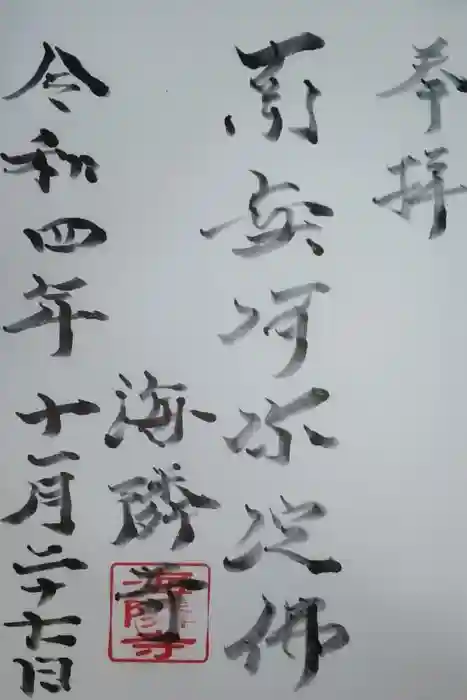 奉拝
南無阿弥陀佛
海隣寺
令和四年十一月二十七日
海隣寺